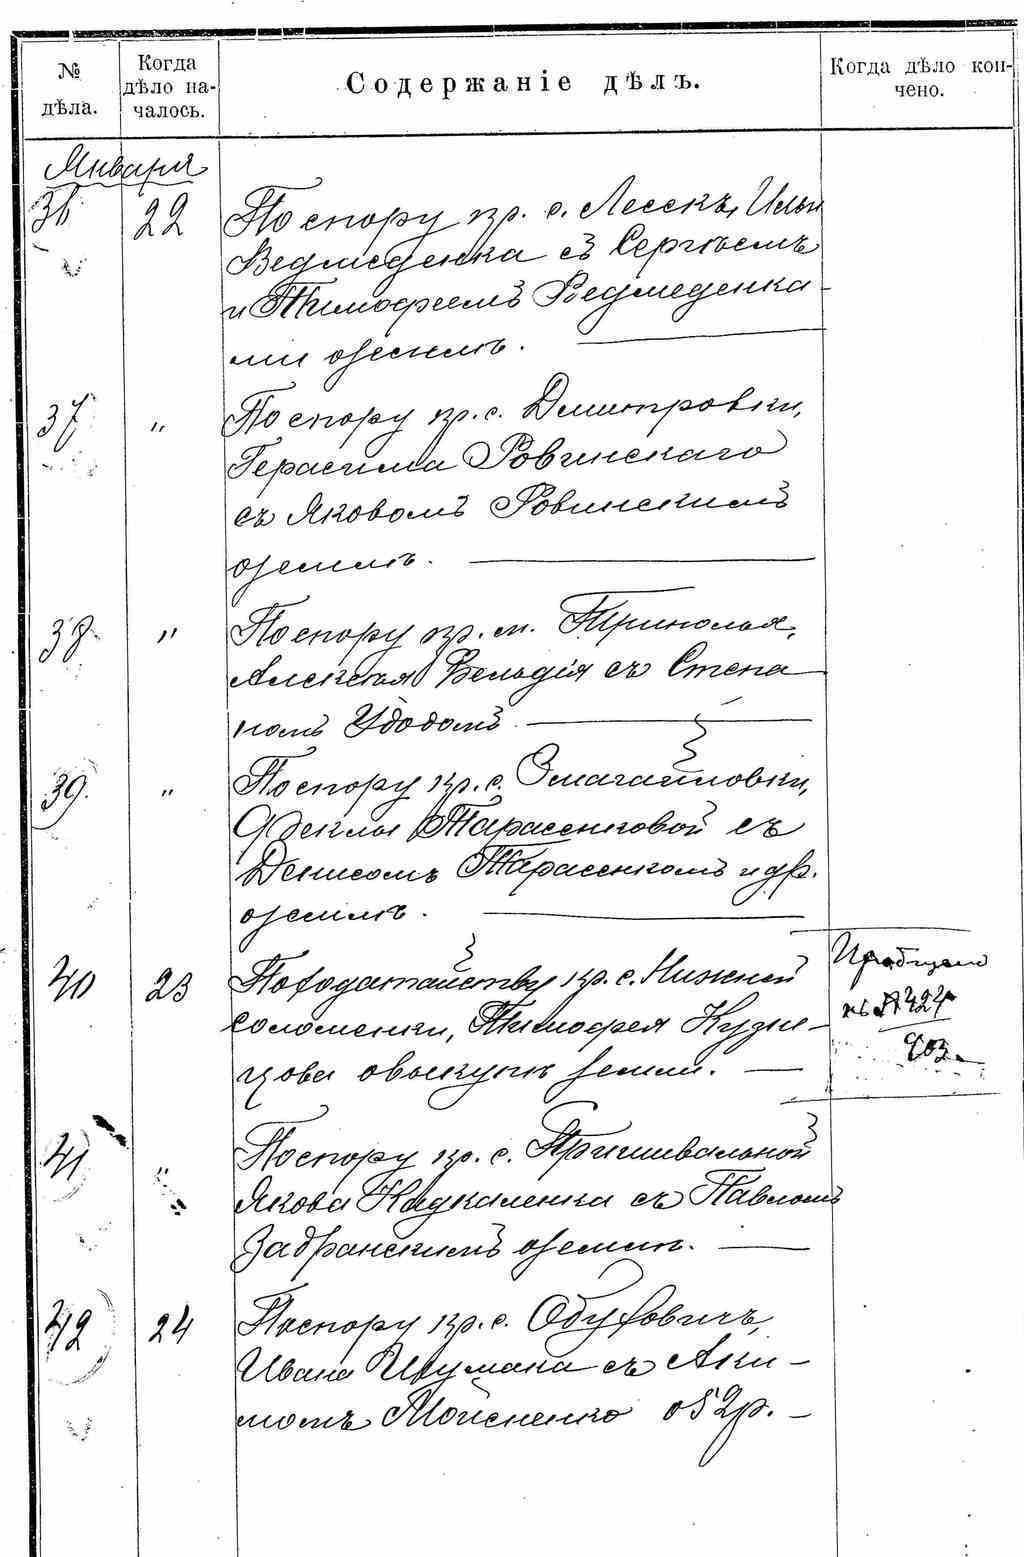 № дѣла.
Когда дѣло началось.
Содержаніе дѣлъ.
Когда дѣло кончено.
Января
36 22 По спору кр. с. Лесекъ, Ильи
Ведмеденка съ Сергѣемъ
и Тимофеемъ Ведмеденка-
ми оземлѣ.
37 " По спору кр. с. Дмитровки,
Герасима Ровинскаго
съ Яковомъ Ровинскимъ
оземлѣ.
38 " По спору кр. м. Триполья,
Алексѣя Бельдія съ Степа
номъ Удодомъ
39 " По спору кр. с.
Феклы Тарасенковой съ
Денисомъ Тарасенкомъ идр.
оземлѣ.
40 23 Походатайству кр. с. Нижней
соломенки, Тимофея Кузне-
цова овыкупѣ земли.
Пріобщено
къ № 424
903.
41 " По спору кр. с. Пришивальной
Якова Кидкаленка съ Павломъ
Задранскимъ оземлѣ.
42 24 По спору кр. с. Обуховичъ,
Ивана Шумана съ Аки-
момъ Мойсненко о52р.